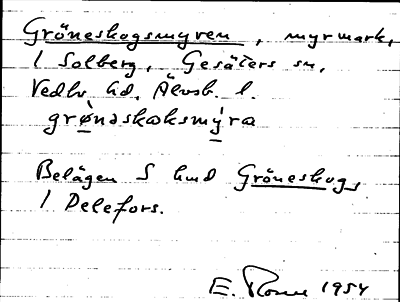 Gröneskogsmyren, myrmark,
1 Solberg, Gesäters sn,
Vedbo hd, Älvsb. l.
grønəskəksmýra
Belägen S kmd Gröneskog,
1 Delefors.
E. 1954